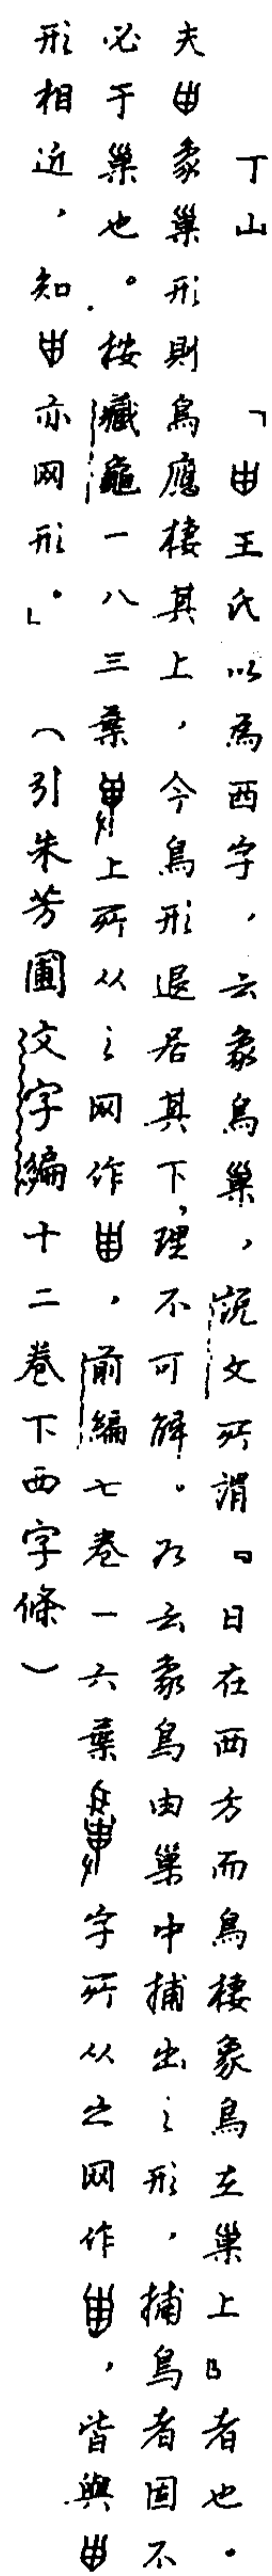 丁山　「由王氏以為西字，云象鳥巢，說文所謂『日在西方而鳥棲象鳥在巢上』者也。
夫由象巢形則鳥應棲其上，今鳥形退居其下，理不可解。乃云象鳥由巢中捕出之形，捕鳥者固不
必于巢也。按藏龜一八三葉上所从之网作，前編七卷一六葉字所从之网作，皆與
形相近，知亦网形。」　（引朱芳圃文字編十二卷下西字條）